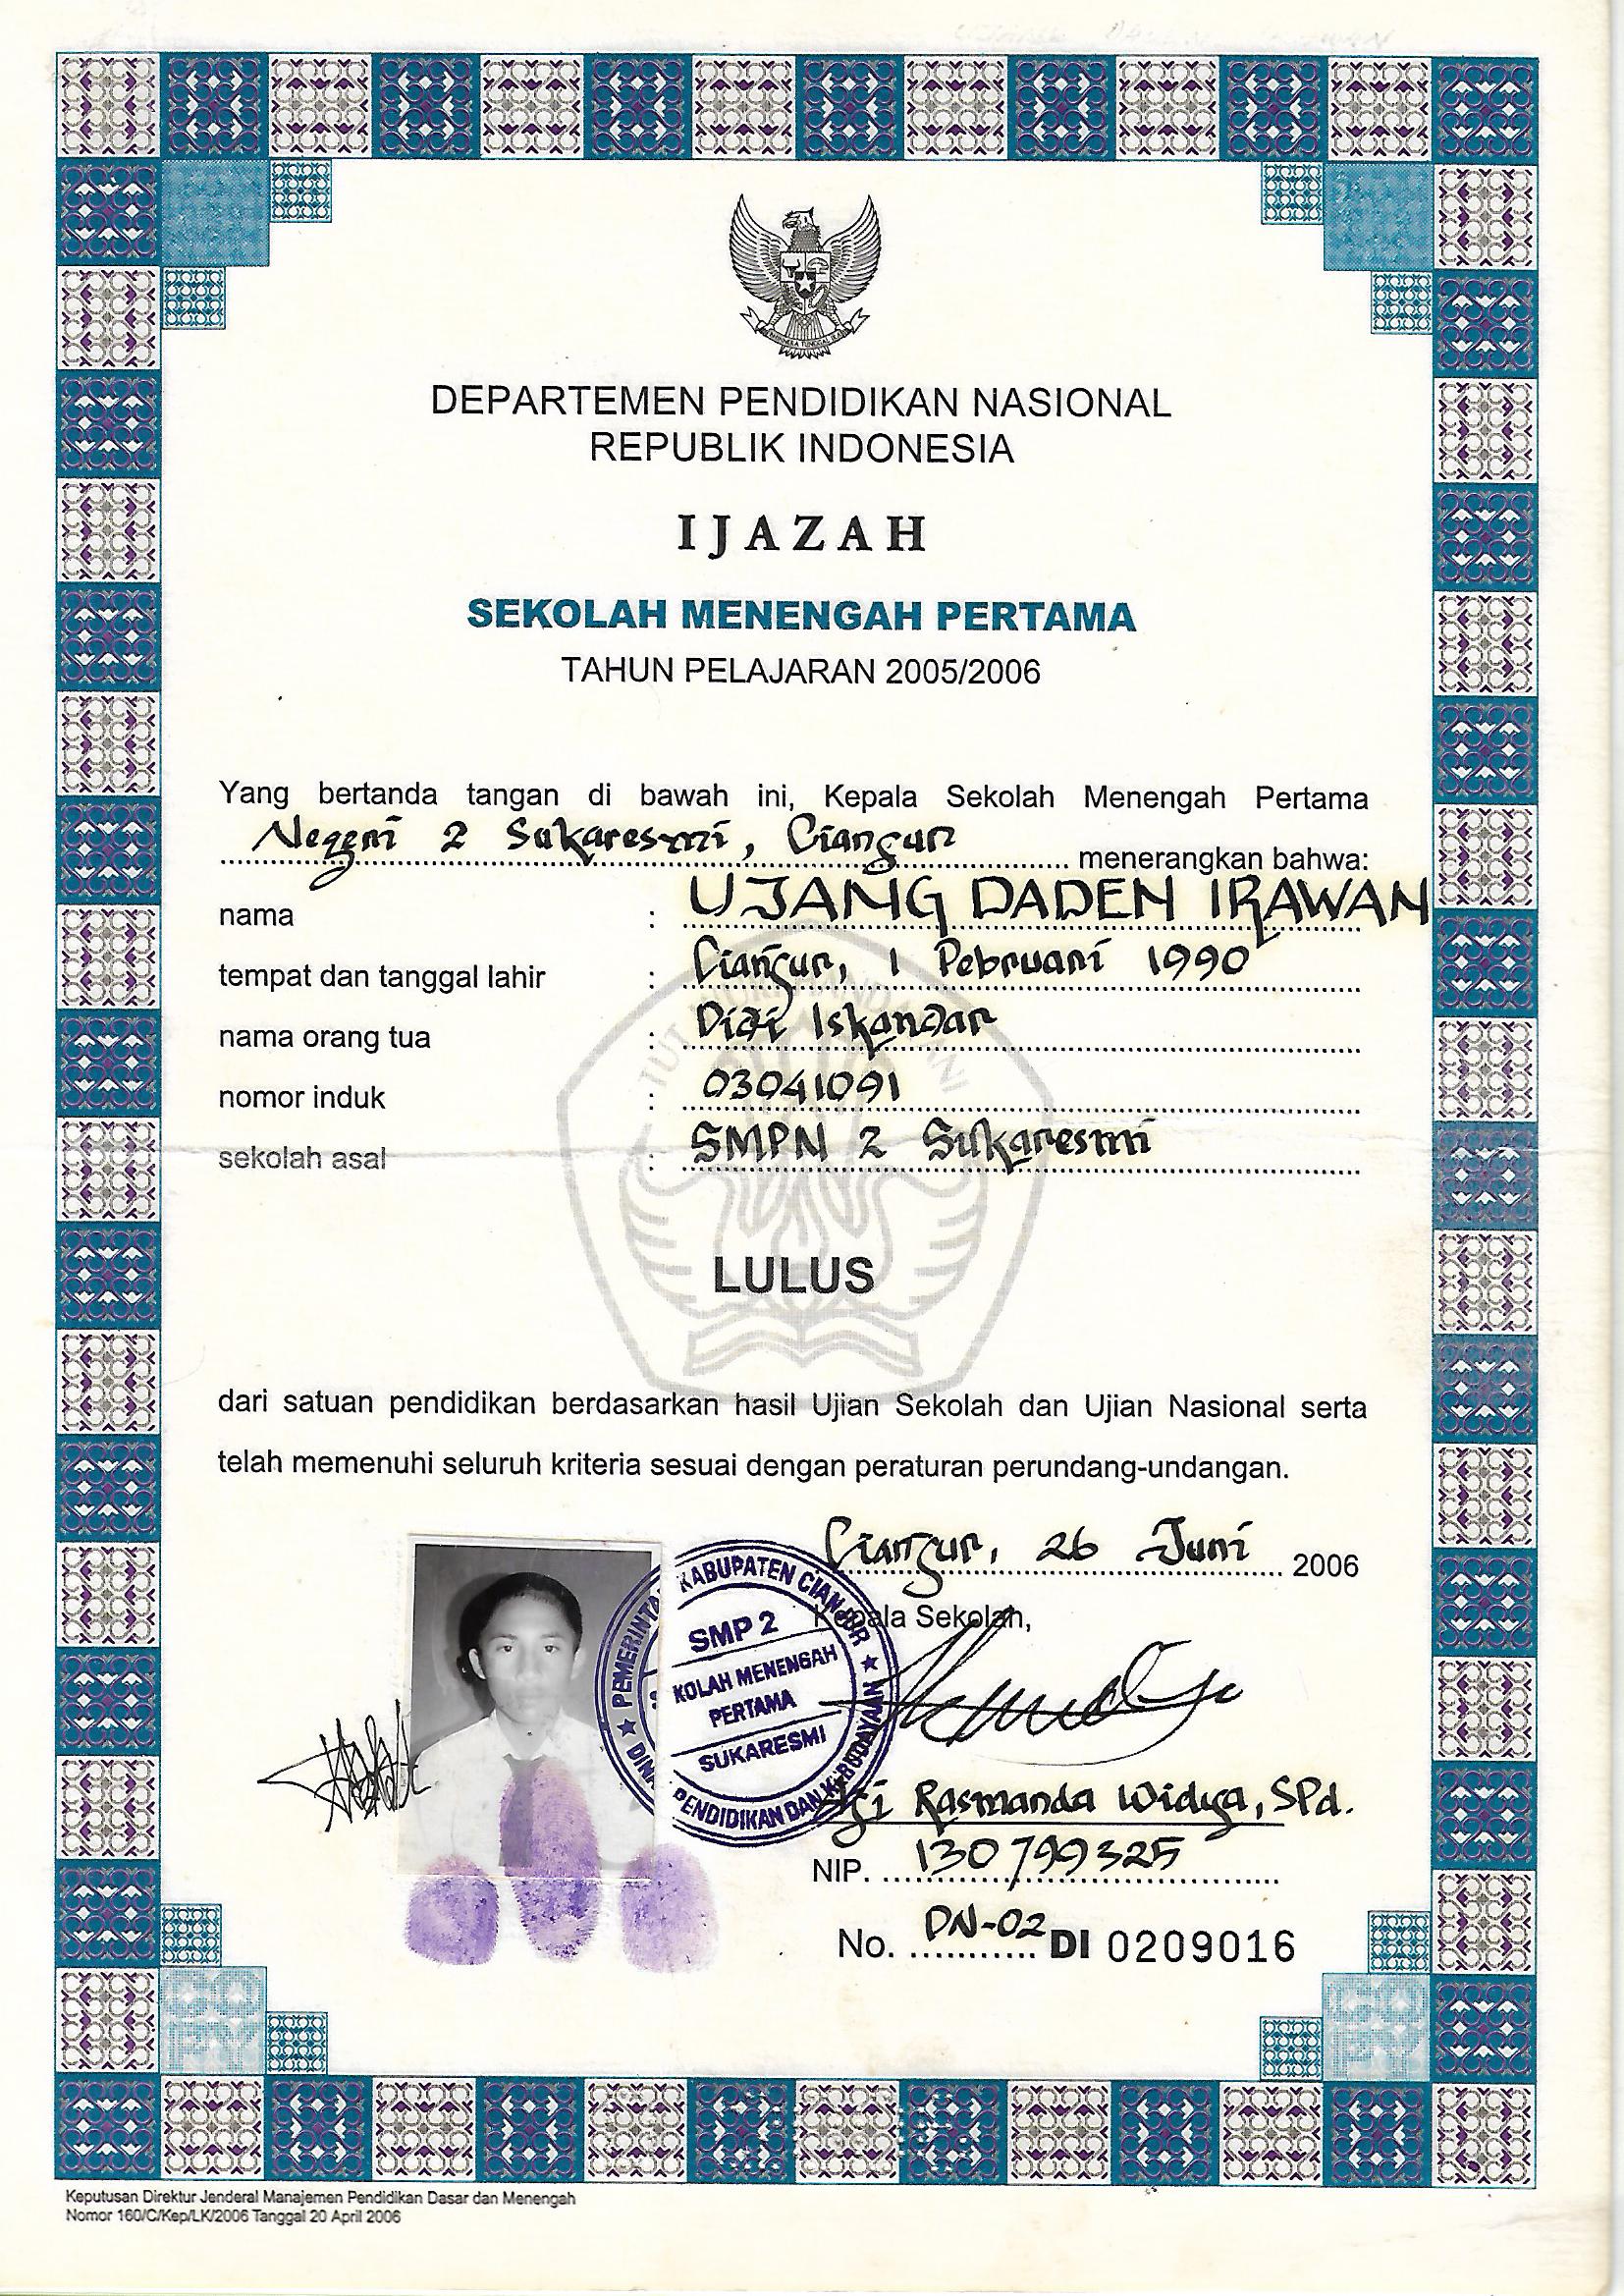 DEPARTEMEN PENDIDIKAN NASIONAL
REPUBLIK INDONESIA
IJAZAH
SEKOLAH MENENGAH PERTAMA
TAHUN PELAJARAN 2005/2006
Yang bertanda tangan di bawah ini, Kepala Sekolah Menengah Pertama
Negeri 2 Sukaresmi, Cianjur menerangkan bahwa:
nama : UJANG DADEN IRAWAN
tempat dan tanggal lahir : Cianjur, 1 Pebruari 1990
nama orang tua : Didi Iskandar
nomor induk : 03041091
sekolah asal : SMPN 2 Sukaresmi
LULUS
dari satuan pendidikan berdasarkan hasil Ujian Sekolah dan Ujian Nasional serta
telah memenuhi seluruh kriteria sesuai dengan peraturan perundang-undangan.
Cianjur, 26 Juni 2006
Kepala Sekolah,
KABUPATEN CIANJUR
SMP 2
KOLAH MENENGAH
PERTAMA
SUKARESMI
PENDIDIKAN DAN KEBUDAYAAN
Rasmanda Widya, SPd.
NIP. 130799325
No. DN-02 DI 0209016
Keputusan Direktur Jenderal Manajemen Pendidikan Dasar dan Menengah
Nomor 160/C/Kep/LK/2006 Tanggal 20 April 2006